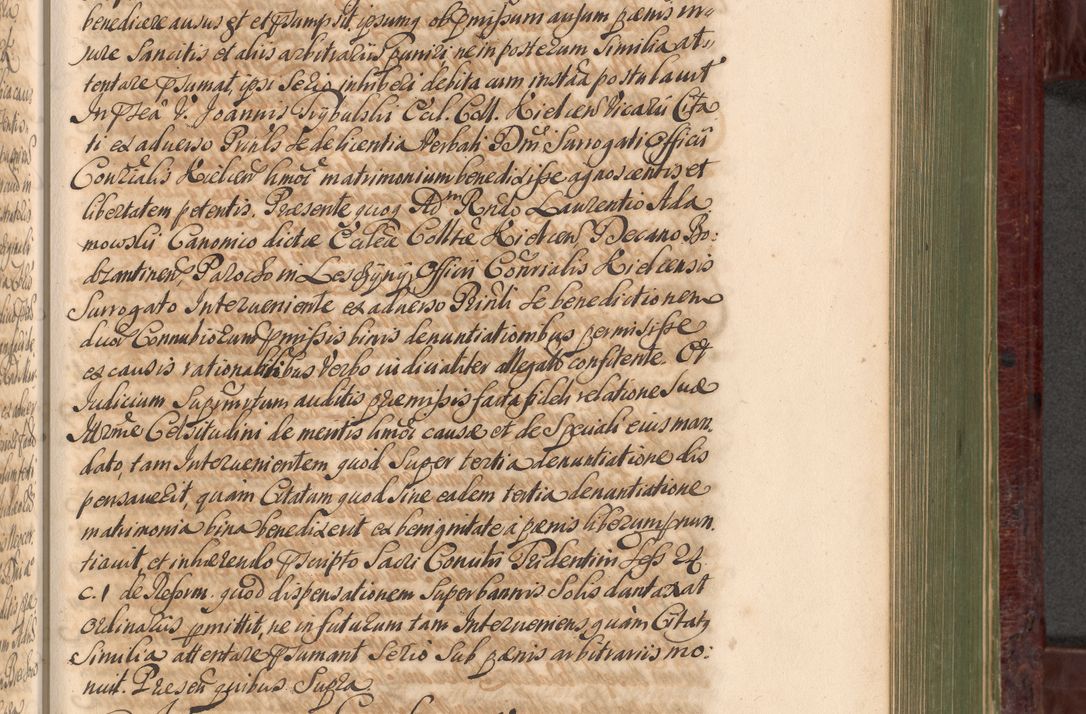 benedicere ausus est et præsumpsit, ipsumq ob præmissum ausum pænis in
jure Sancitis et aliis arbitrariis puniri ne in posterum Similia at-
tentare præsumat, ipsi Serio inhiberi debita cum instâa postulavit
In pñtiâ V. Joannis Trybulski Eccl. Coll. Kielcen Vicarii Cita
ti ex adverso Prinls se de licentia Verbali Dñi Surrogati Officii
Conralis Kielcen hmôi matrimonium benedixisse agnoscentis et
libertatem petentis. Præsente quoq Adm Rndo Laurentio Ada
mowski Canonico dictæ Eccleæ Colltæ Kielcen Decano Bo:
brantinen, Parocho in Leszczyny, Officii Conrialis Kielcensis
Surrogato Interveniente ex adverso Prinli se benedictionem
duor Connubiorum præmissis binis denuntiationibus permisisse
ex causis rationabilibus Verbo iudicialiter allegatis confitente. Et
Judicium Supmitum auditis præmissis facta fideli relatione Suæ
Illrmæ Celsitudini de mentis hmôi causæ et de Speciali eius man
dato, tam Intervenientem quod Super tertia denuntiatione dis
pensaverit, quàm Citatum quod Sine eadem tertia denuntiatione
matrimonia bina benedixerit ex benignitate à pænis liberum pronun
tiavit, et inhærendo præscripto Sacri Concilii Tridentini Sess 24
c. 1 de Reform. quod dispensationem Super bannis Solis duntaxat
Ordinariis permittit, ne in futurum tam Interveniens quàm Citat9
Similia attentare præsumant Serio Sub pænis arbitrariis mo:
nuit. Præsen quibus Supra.